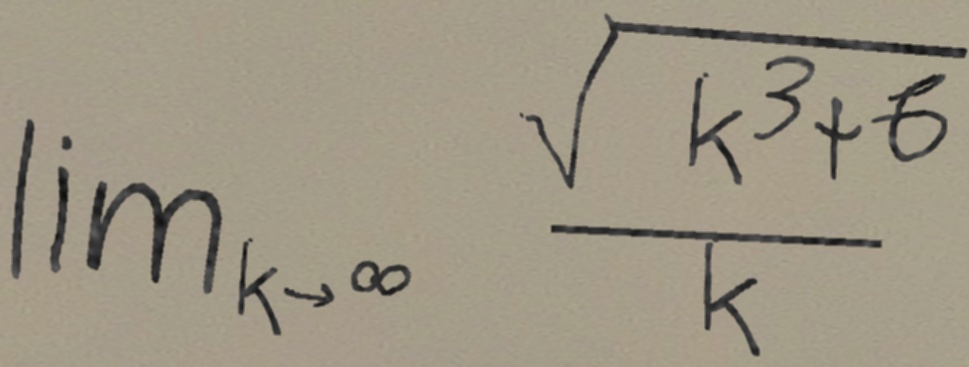 \lim_{k \to \infty} \frac{\sqrt{k^3+6}}{k}